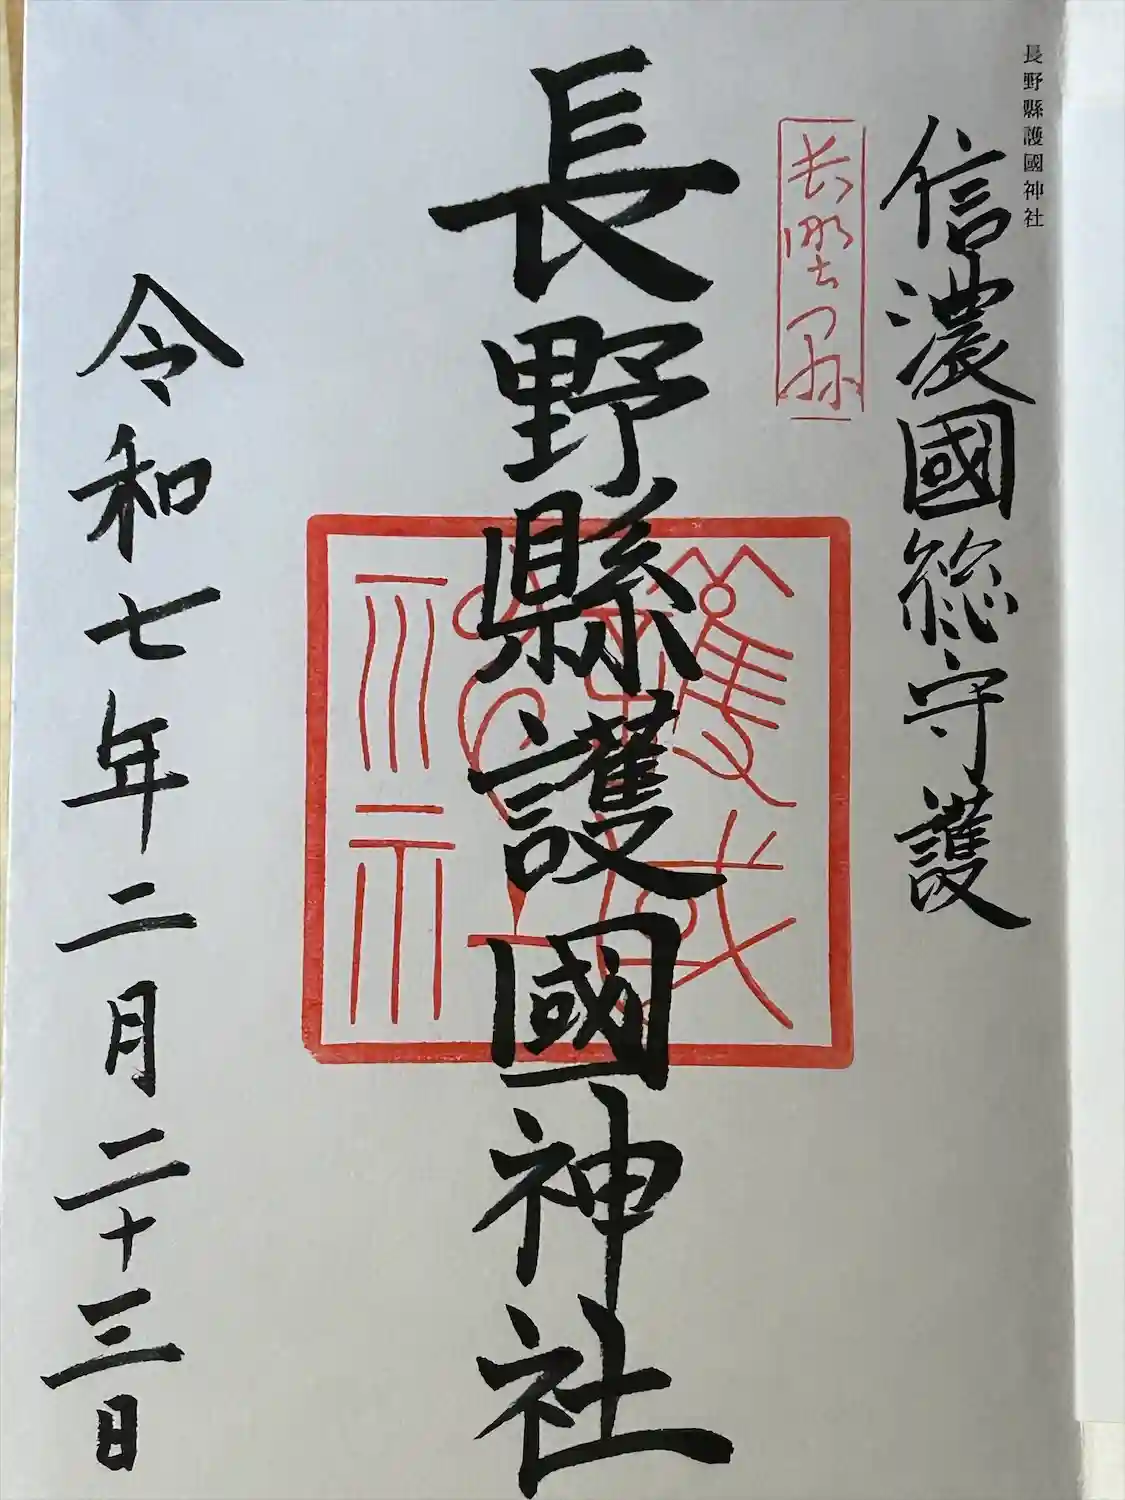 長野縣護國神社
信濃國総守護
長野縣
長野縣護國神社
護國神社
令和七年二月二十三日